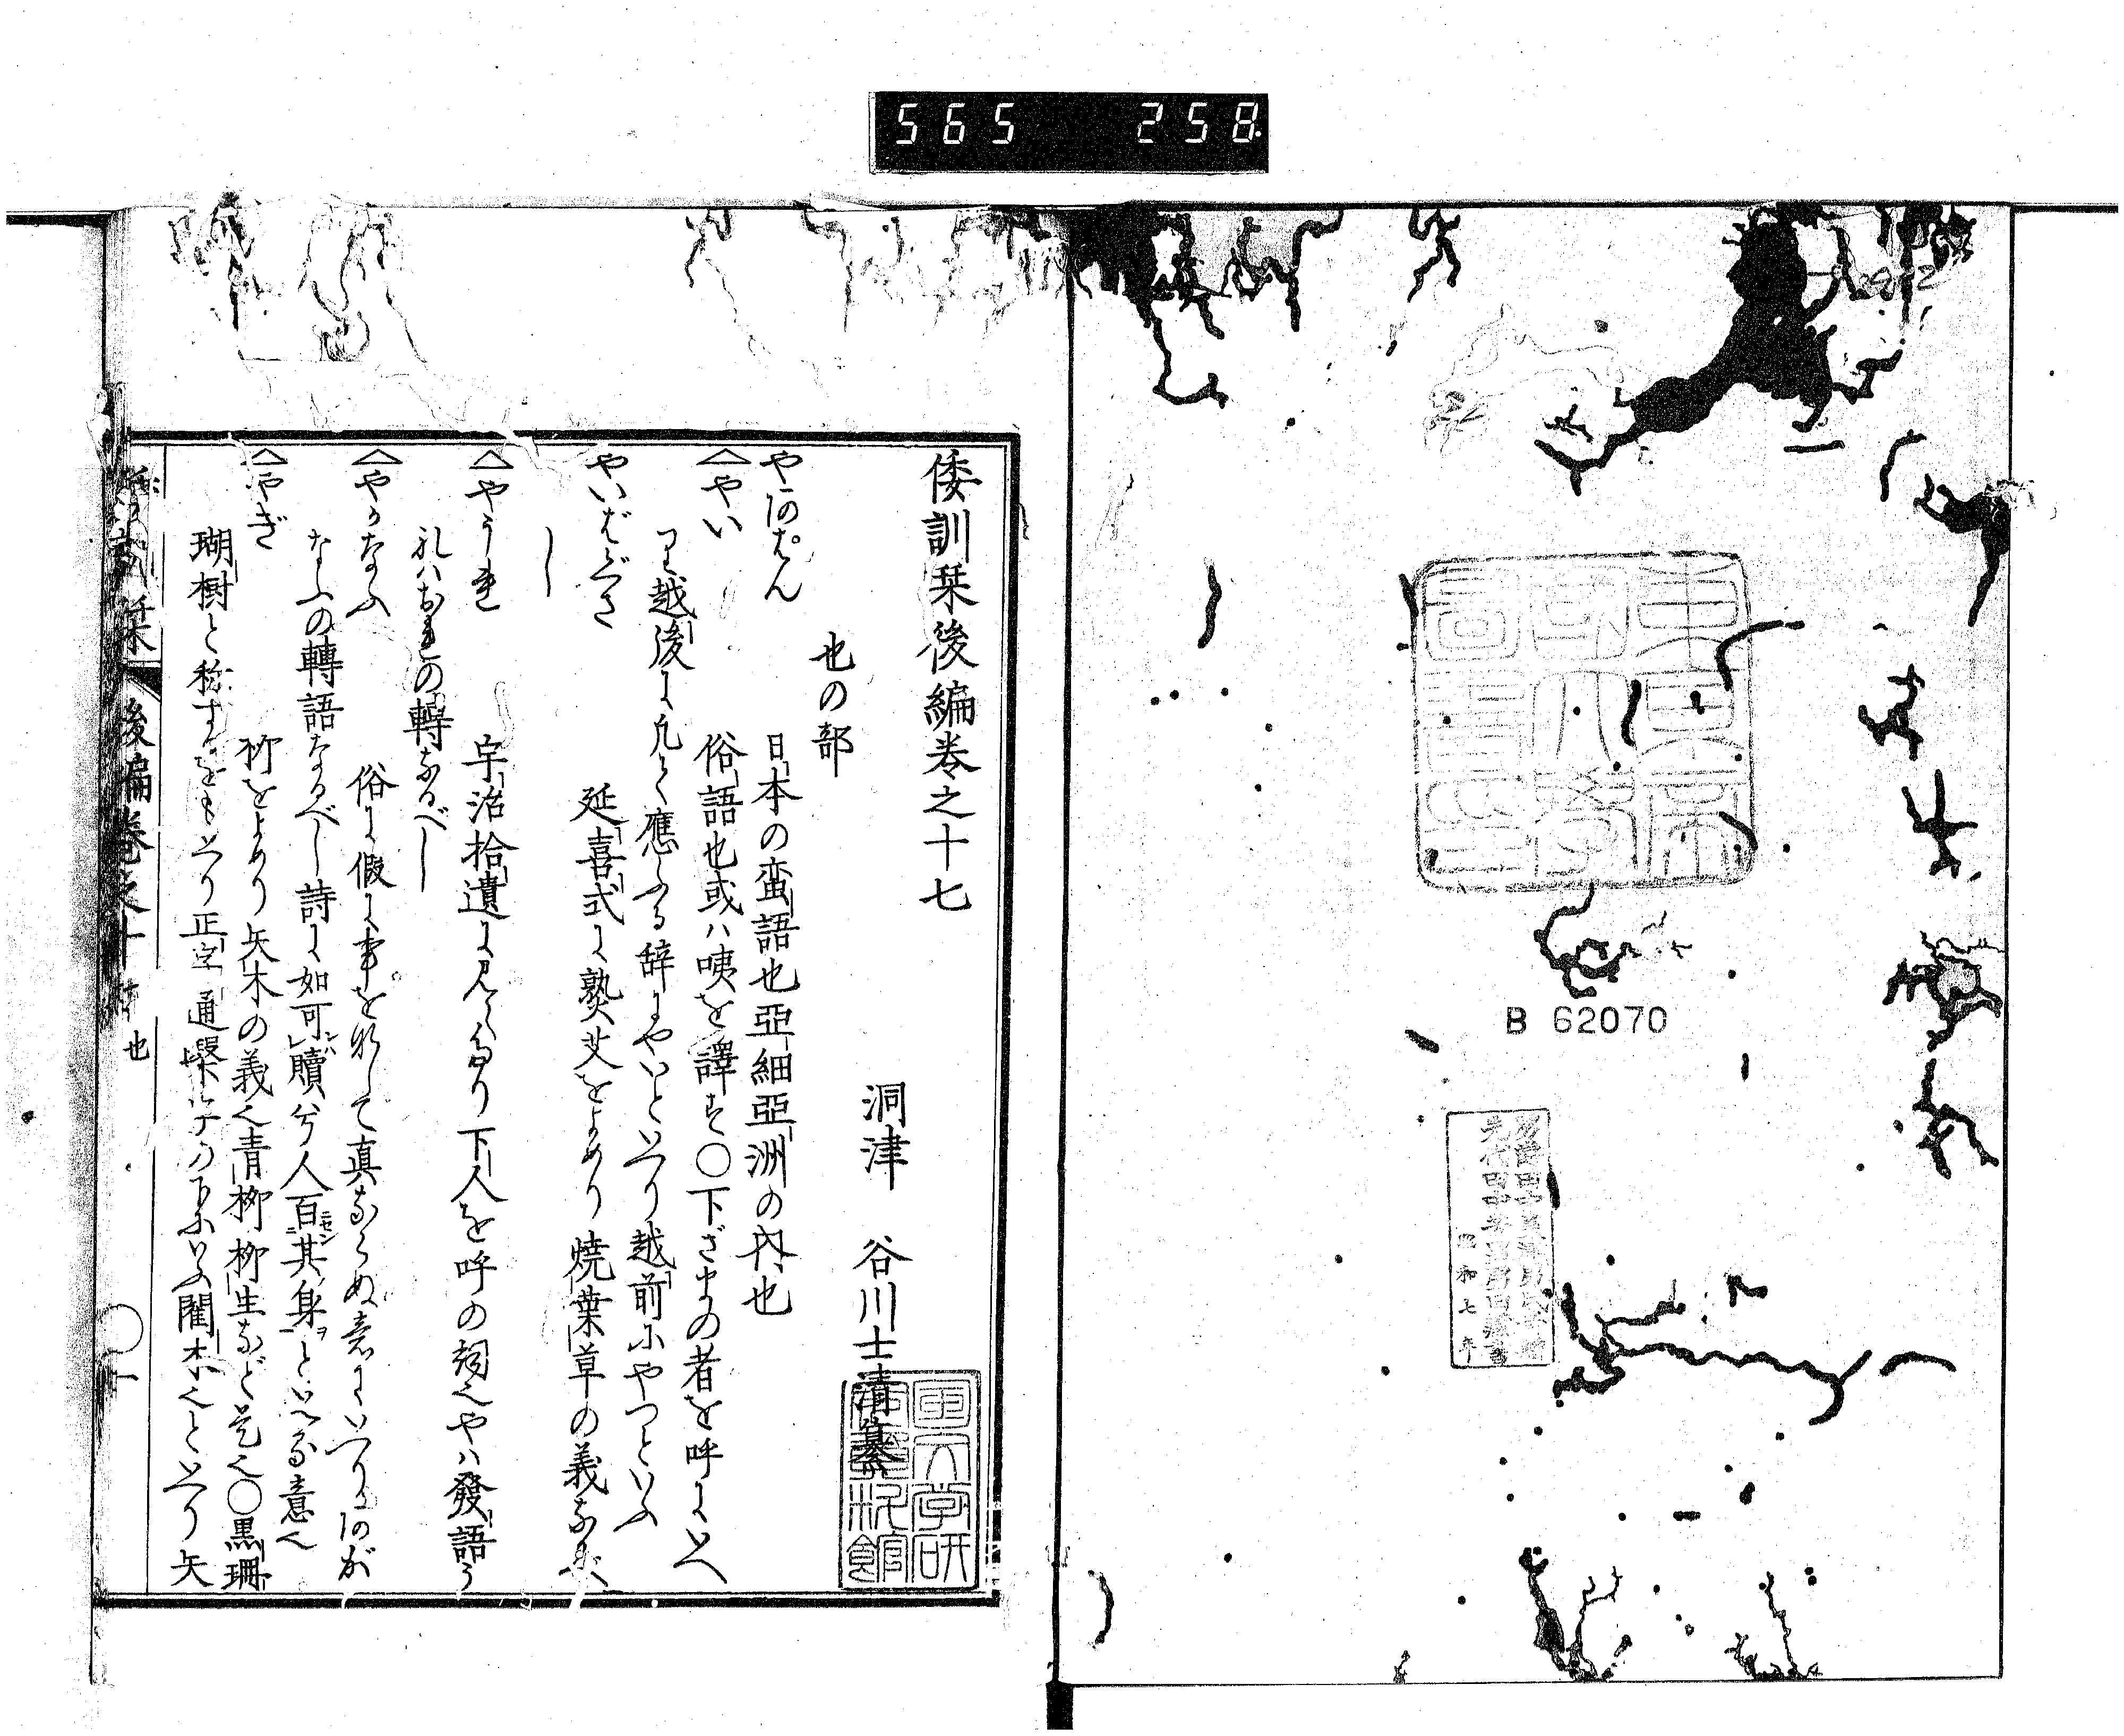 565 258
B 62070
昭和七年
倭訓栞後編巻之十七
洞津 谷川士清纂
也の部
やあぱん 日本の蛮語也亞細亞洲の内也
△やい 俗語也或ハ咦を譯す〇下ざまの者を呼にいへ
り越後に凡て應ふる辞にやいといへり越前にやつといふ
やいばぐさ 延喜式に熟艾をよめり焼葉草の義なるべ
し
△やうれ 宇治拾遺に見えたり下人を呼の詞也やハ發語う
れハおれの轉なるべし
△やうなふ 俗に假に事をなして真ならぬ意にいへりあが
なふの轉語なるべし詩に如可贖兮人百其身といへる意也
△やぎ 柳をよめり矢木の義也青柳柳生など是也〇黒珊
瑚樹と称するをもいへり正字通
の下にいふ閣木也といへり矢
後編巻之十
也
〇一